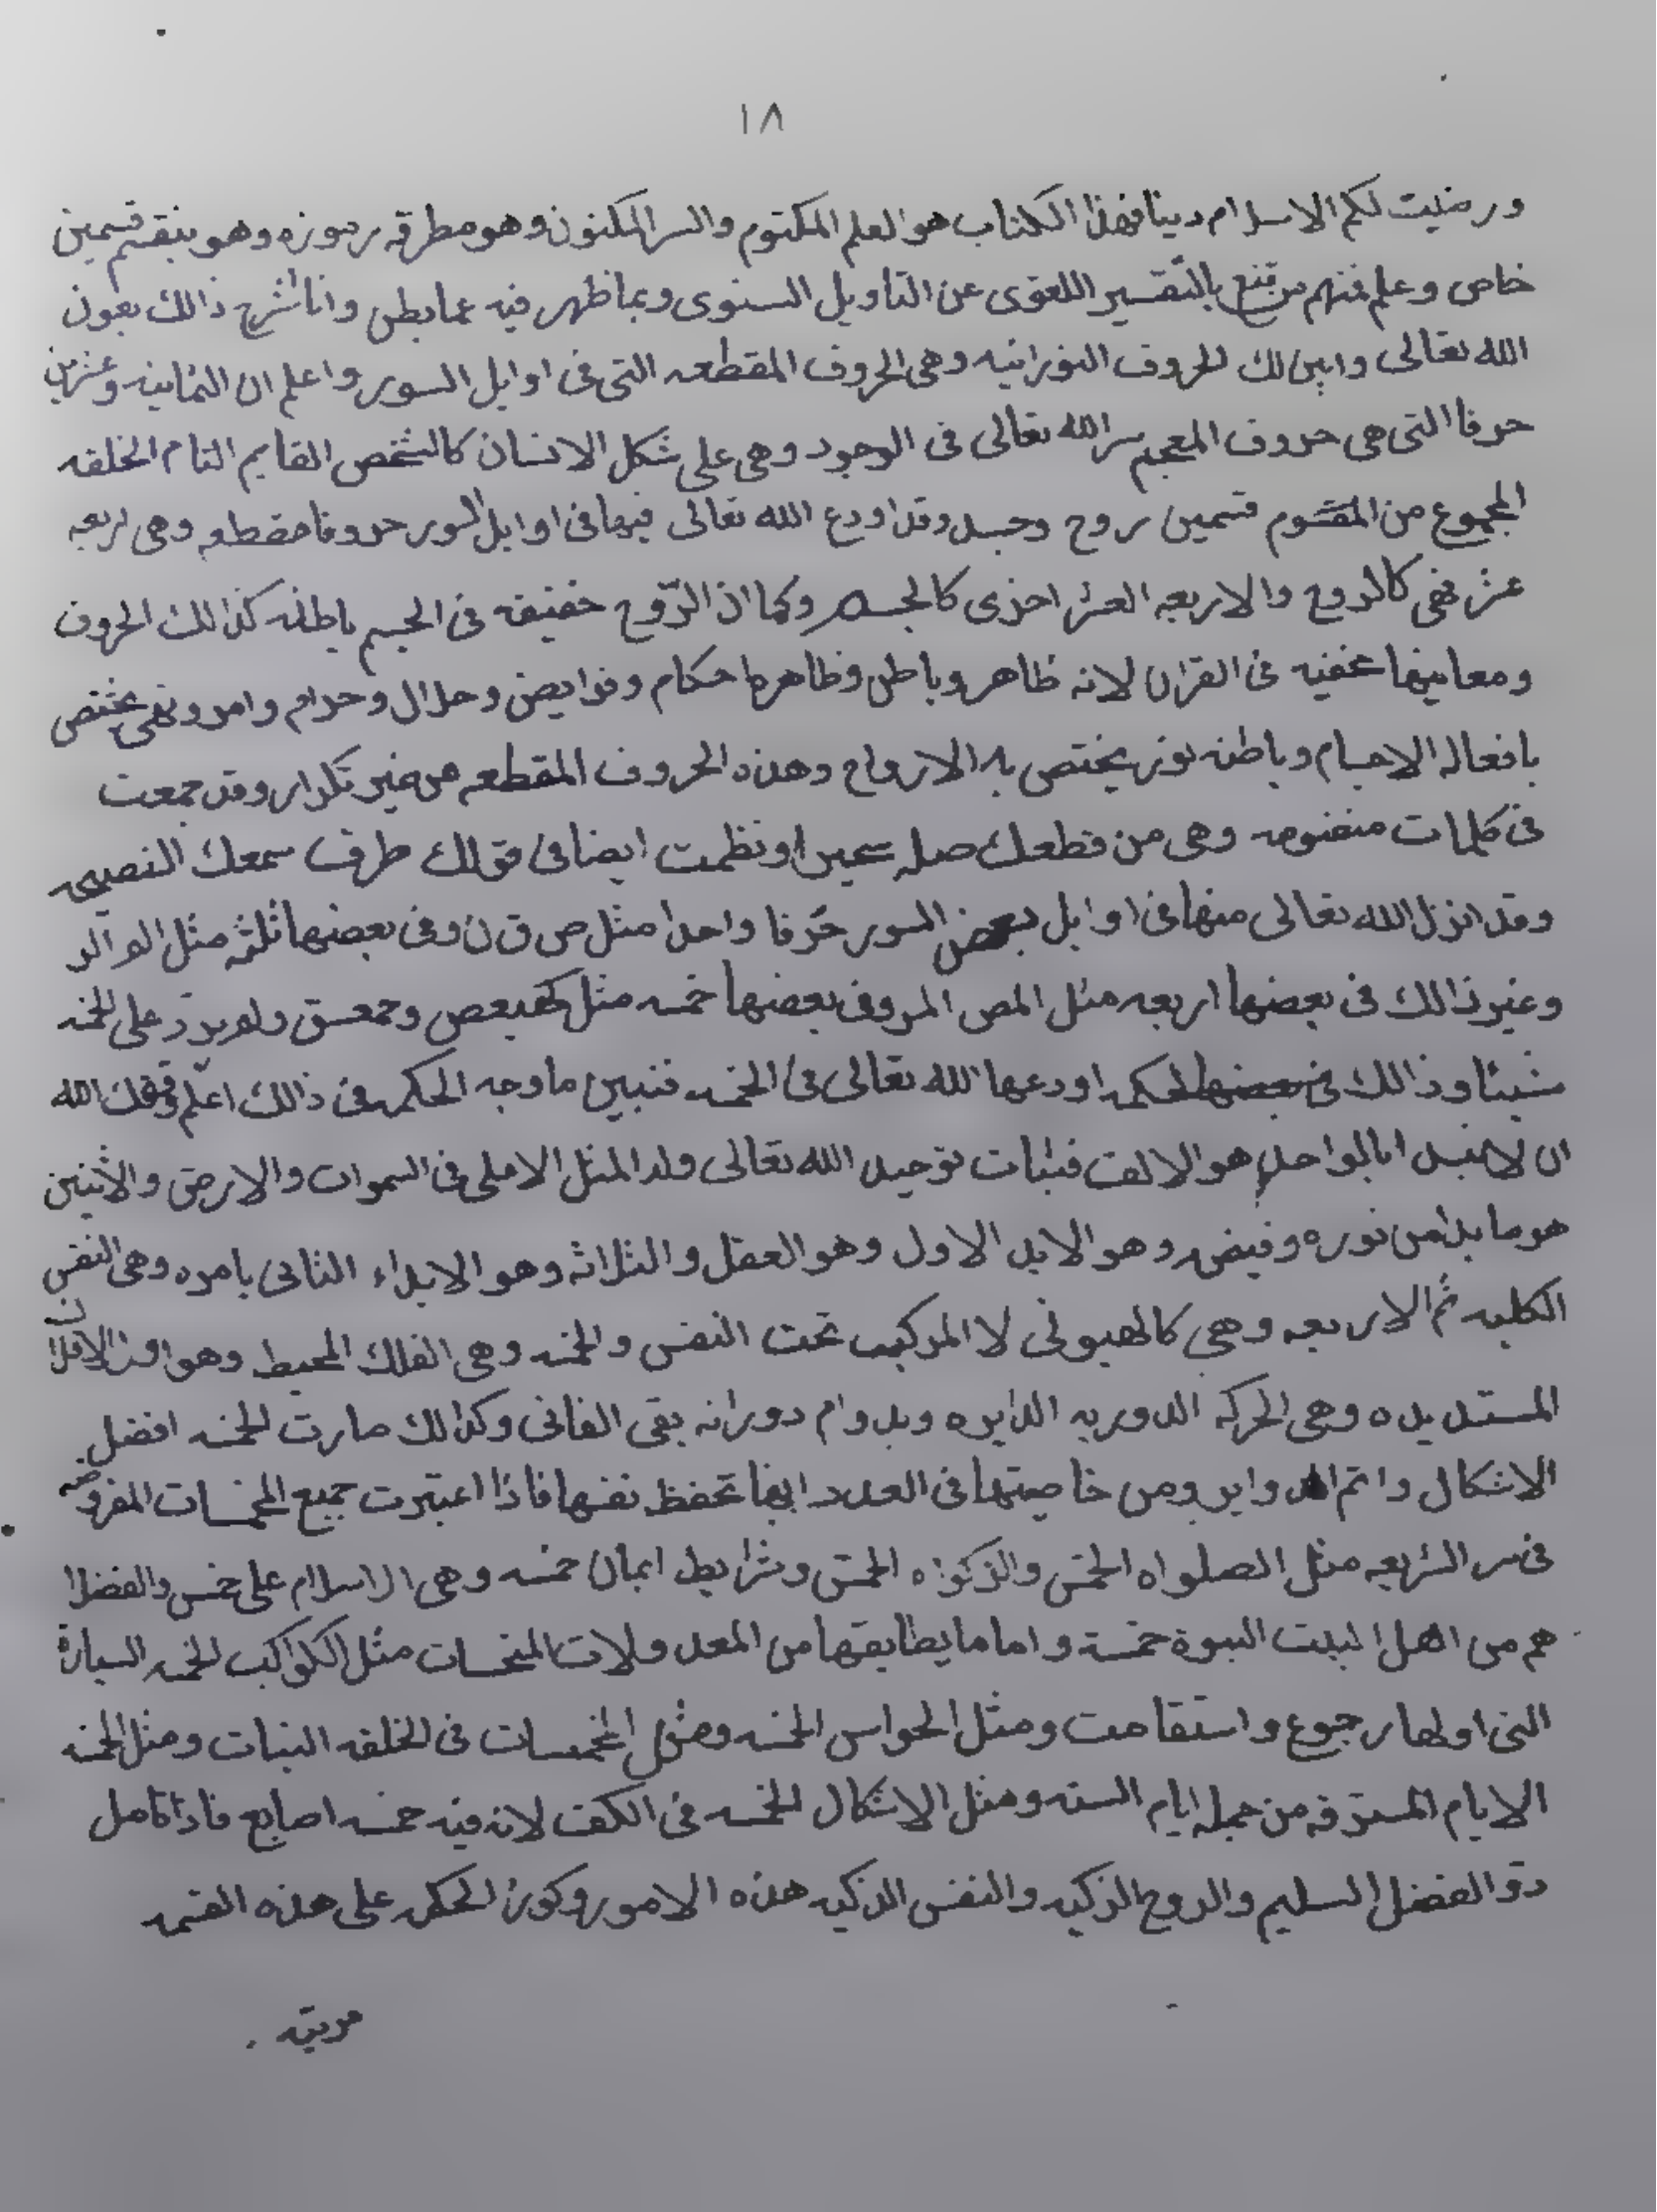 ١٨
ورضيت لكم الاسلام دينا فهذا الكتاب هو العلم المكتوم والسر المكنون وهو مطرقه رموزه وهو ينقسم قسمين
خاص وعلم فمنهم من قنع بالتفسير اللغوى عن التاويل السنوى وبما ظهر فيه عما بطن وانا اشرح ذالك بعون
الله تعالى وابين لك الحروف النورانيه وهى الحروف المقطعه التى فى اوايل السور واعلم ان الثمانيه وعشرين
حرفا التى هى حروف المعجم سر الله تعالى فى الوجود وهى على شكل الانسان كالشخص القايم التام الخلقه
المجموع من المقسوم قسمين روح وجسد وقد اودع الله تعالى فيها فى اوايل السور حروفا مقطعه وهى اربعه
عشر فهى كالروح والاربعه العشر اخرى كالجسم وكما ان الروح خفيفه فى الجسم باطنه كذالك الحروف
ومعانيها مخفيه فى القران لانه ظاهر وباطن وظاهره احكام وفرايض وحلال وحرام وامر ونهى يختص
بافعاله الاجسام وباطنه نور يختص به الارواح وهذه الحروف المقطعه من غير تكرار وقد جمعت
فى كلمات منضومه وهى من قطعك صله سحيرا ونظمت ايضا فى قولك طرف سمعك النصيحه
وقد انزل الله تعالى منها فى اوايل بعض السور حرفا واحدا مثل ص ق ن وفى بعضها ثلثه مثل الم الر
وغير ذالك فى بعضها اربعه مثل المص المر وفى بعضها خمسه مثل كهيعص وحمعسق ولم يرد على الخمسه
شيئا وذالك فى بعضها لحكمه اودعها الله تعالى فى الخمسه فنبين ما وجه الحكمه فى ذالك اعلم وفقك الله
ان لا نبد ابالواحد هو الالف فبثبات توحيد الله تعالى وله المثل الاعلى فى السموات والارض والاثنين
هو ما بدا من نوره وفيضه وهو الابد الاول وهو العقل والثلاثه وهو الابداء الثانى بامره وهى النفس
الكليه ثم الاربعه وهى كالهيولى لا المركبه تحت النفس والخمسه وهى الفلك المحيط وهو اول الافلاك
المستديده وهى الحركه الدوريه الدايره وبدوام دورانه بقى الفانى وكذالك صارت الخمسه افضل
الاشكال واتم الدواير ومن خاصيتها فى العدد انها تحفظ نفسها فاذا اعتبرت جميع المخمسات المفروضه
فى سر الشريعه مثل الصلواه الخمس والزكواه الخمس وشرايط ايمان خمسه وهى الاسلام على خمس والفضلا
هم من اهل البيت النبوة خمسة واما ما يطابقها من المعدولات المخمسات مثل الكواكب الخمسه السيارة
التى اولها رجوع واستقامت ومثل الحواس الخمسه ومثل المخمسات فى الخلقه النبات ومثل الخمسه
الايام المسترقه من جمله ايام السنه ومثل الاشكال الخمسه فى الكف لانه فيه خمسه اصابع فاذا تامل
ذو الفضل السليم والروح الزكيه والنفس الذكيه هذه الامور وكون الحكمه على هذه القسمه
مرتبه